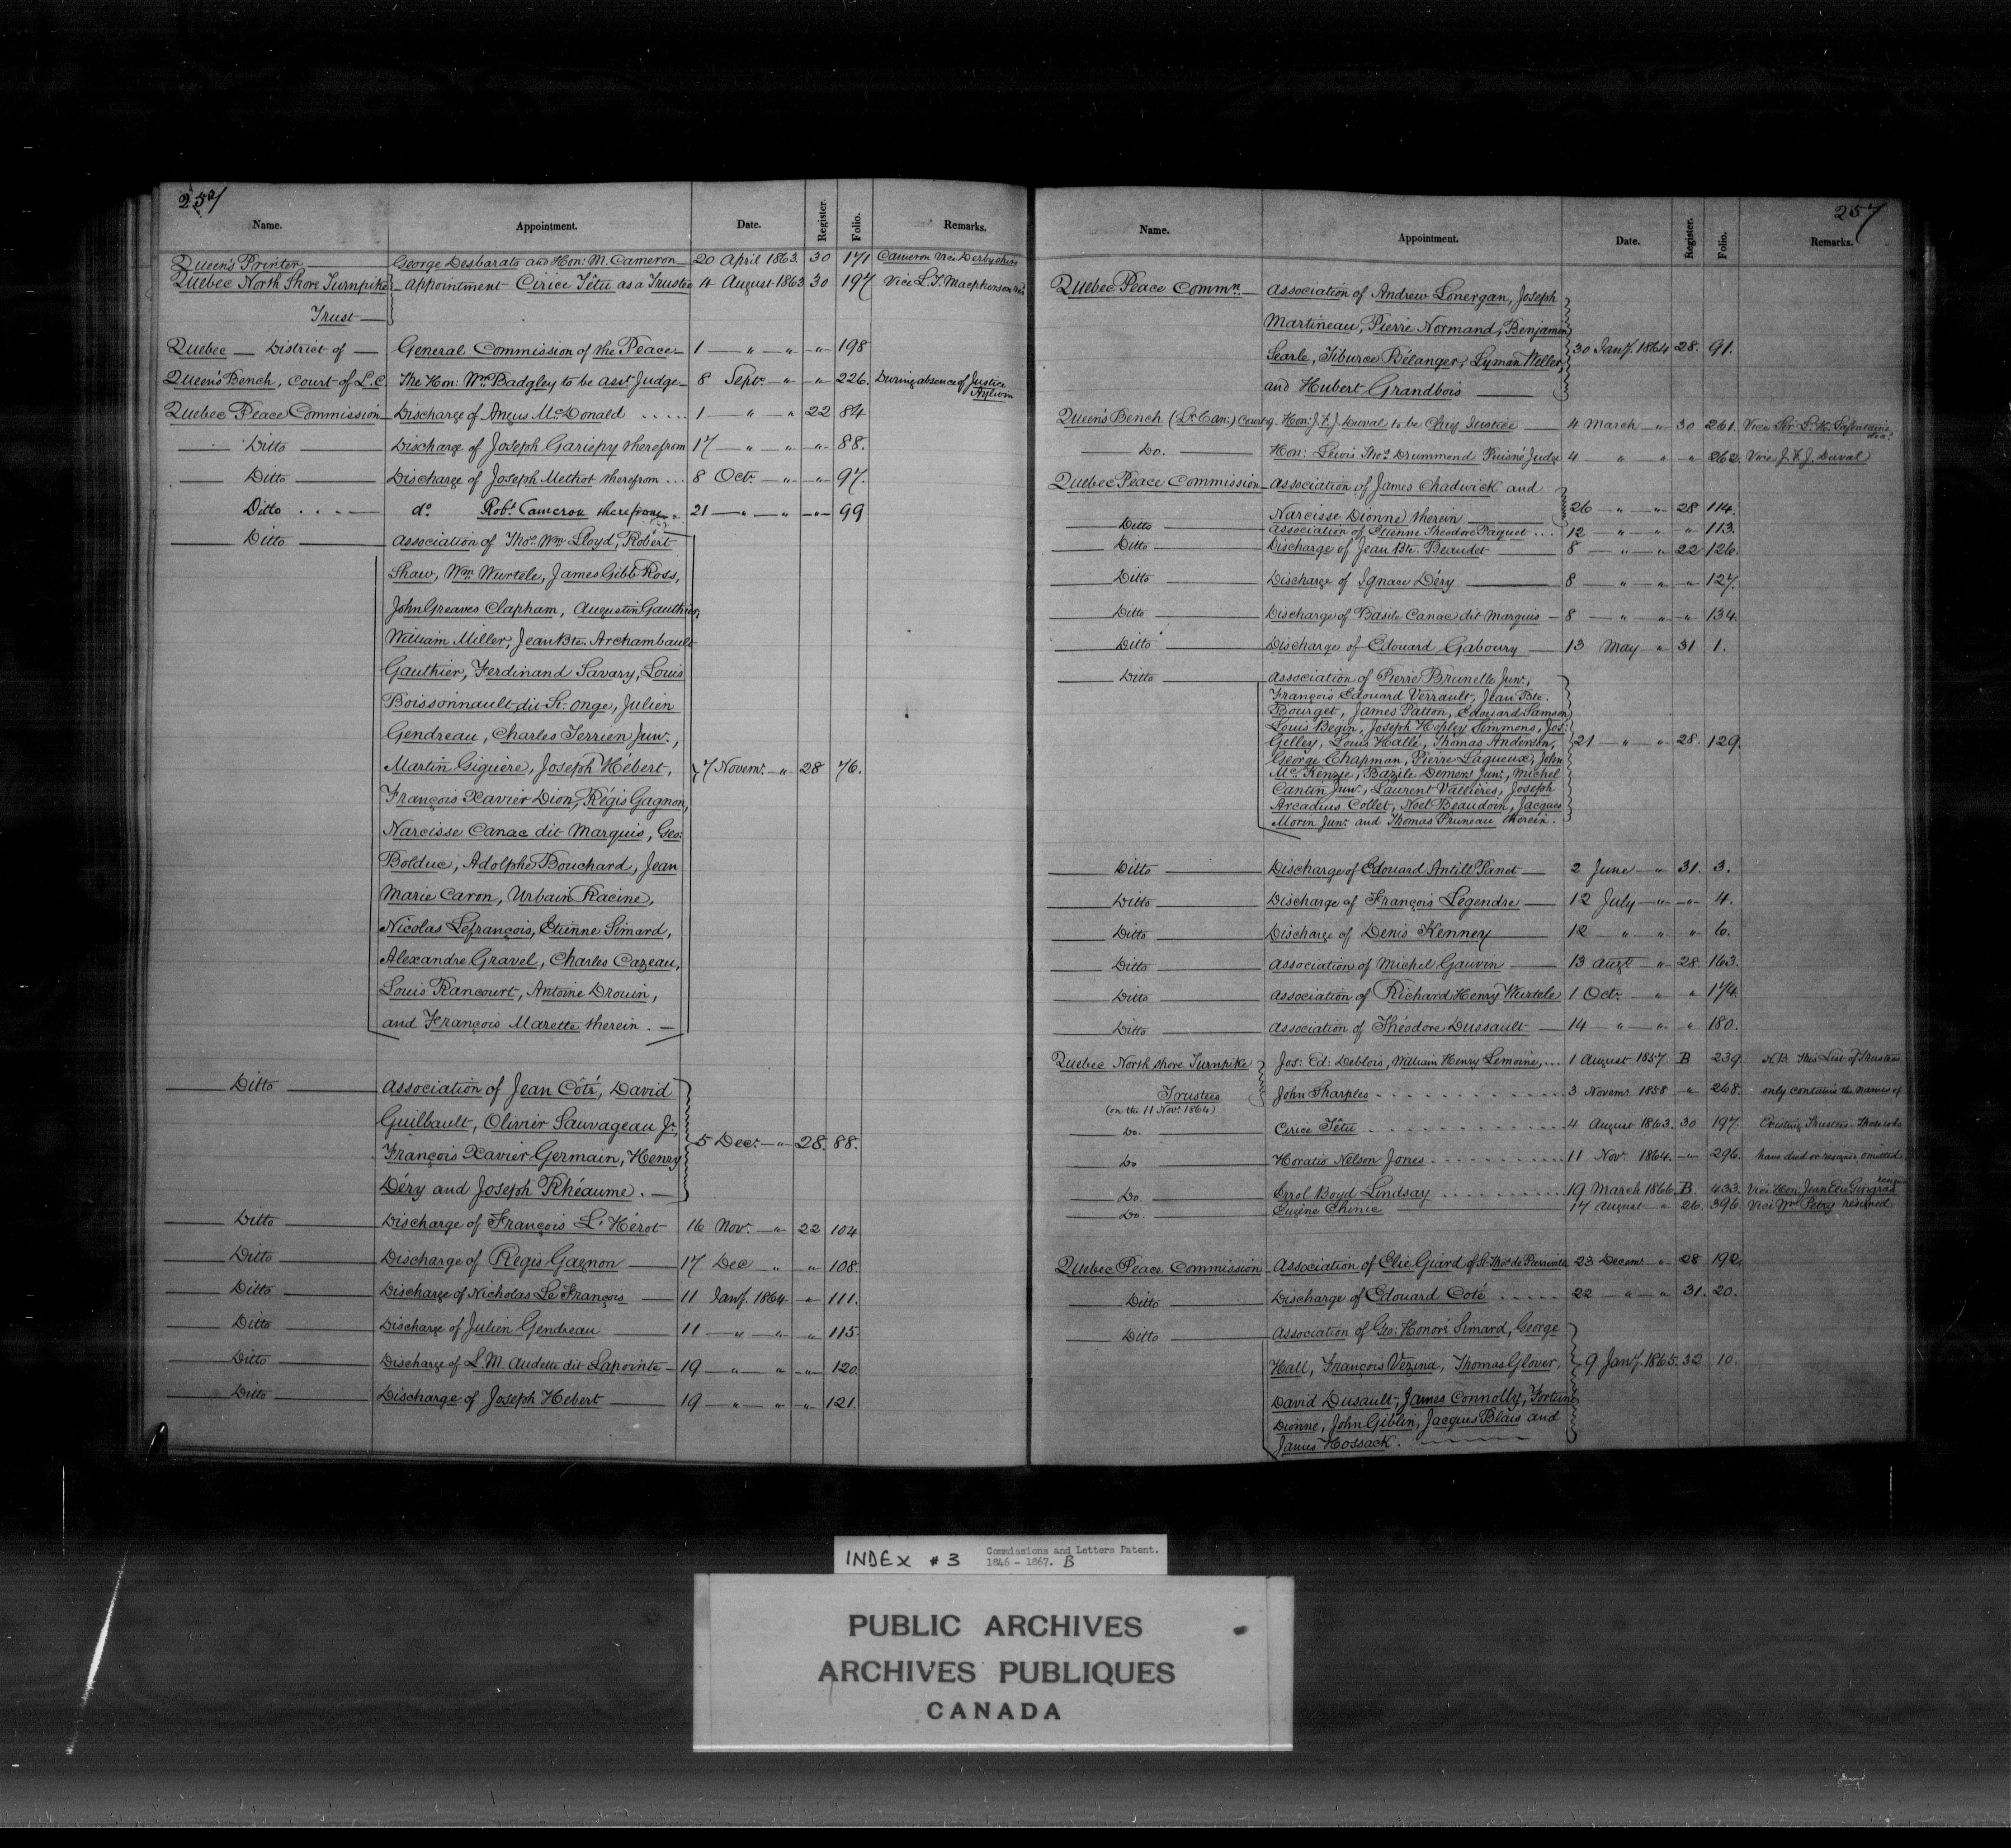 257
Name. Appointment. Date. Register. Folio. Remarks.
Queen's Printer George Desbarats and Hon: M. Cameron 20 April 1863 30 171 Cameron vice Derbyshire
Quebec North Shore Turnpike Appointment Cirice Têtu as a Trustee 4 August 1863 30 197 Vice L. T. Macpherson
Trust
Quebec District of General Commission of the Peace 1 " " " 198
Queen's Bench, Court of L.C. The Hon: Wm Badgley to be asst Judge 8 Septr " " 226. During absence of Justice
Aylwin
Quebec Peace Commission Discharge of Angus McDonald ..... 1 " " 22 84
Ditto Discharge of Joseph Gariepy therefrom 17 " " " 88.
Ditto Discharge of Joseph Methot therefrom ... 8 Oct. " " 97.
Ditto .... do Robt Cameron therefrom 21 " " " 99
Ditto Association of Thos Wm Lloyd, Robert
Shaw, Wm Wurtele, James Gibb Ross,
John Greaves Clapham, Augustin Gauthier,
William Miller, Jean Bte. Archambault
Gauthier, Ferdinand Savary, Louis
Boissonnault dit St: Onge, Julien
Gendreau, Charles Terrien Junr.,
Martin Giguère, Joseph Hébert, 7 Novemr. " 28 76.
François Xavier Dion, Régis Gagnon,
Narcisse Canac dit Marquis, Geo:
Bolduc, Adolphe Bouchard, Jean
Marie Caron, Urbain Racine,
Nicolas Lefrançois, Etienne Simard,
Alexandre Gravel, Charles Cazeau,
Louis Rancourt, Antoine Drouin,
and François Marette therein.
Ditto Association of Jean Côté, David
Guilbault, Olivier Sauvageau Jr.
François Xavier Germain, Henry 5 Decr. " 28. 88.
Déry and Joseph Rhéaume.
Ditto Discharge of François L'Hérot 16 Nov. " 22 104
Ditto Discharge of Regis Gagnon 17 Dec " " 108.
Ditto Discharge of Nicholas Le François 11 Jany. 1864 " 111.
Ditto Discharge of Julien Gendreau 11 " " " 115.
Ditto Discharge of L. M. Audette dit Lapointe 19 " " " 120.
Ditto Discharge of Joseph Hebert 19 " " " 121.
257
Name. Appointment. Date. Register. Folio. Remarks.
Quebec Peace Commn. Association of Andrew Lonergan, Joseph
Martineau, Pierre Normand, Benjamin
Searle, Tiburce Bélanger, Lyman Weller 30 Jany. 1864 28. 91.
and Hubert Grandbois
Queen's Bench (L. Can:) Court of Hon: J. F. J. Duval to be Chief Justice 4 March " 30 261. Vice Sir L. H. Lafontaine
Do. Hon: Lewis Thos Drummond Puisné Judge 4 " " " 262. Vice J. F. J. Duval
Quebec Peace Commission Association of James Chadwick and
Narcisse Dionne therein 26 " " 28 114.
Ditto Association of Etienne Theodore Paquet ... 12 " " " 113.
Ditto Discharge of Jean Bte. Beaudet 8 " " 22 126.
Ditto Discharge of Ignace Déry 8 " " " 127.
Ditto Discharge of Basile Canac dit Marquis 8 " " " 134.
Ditto Discharge of Edouard Gaboury 13 May " 31 1.
Ditto Association of Pierre Brunelle Junr,
François Edouard Verrault, Jean Bte.
Bourget, James Patton, Edouard Samson
Louis Begin, Joseph Hopley Simmons, Jos:
Gelley, Louis Hallé, Thomas Anderson, 21 " " 28. 129.
George Chapman, Pierre Laqueux, John
McKenzie, Bazile Demers Junr, Michel
Cantin Junr., Laurent Vallières, Joseph
Arcadius Collet, Noel Beaudoin, Jacques
Morin Junr. and Thomas Pruneau therein.
Ditto Discharge of Edouard Antill Panet 2 June " 31. 3.
Ditto Discharge of François Légendre 12 July " " 4.
Ditto Discharge of Denis Kenney 12 " " " 6.
Ditto Association of Michel Gauvin 13 Augt. " 28. 163.
Ditto Association of Richard Henry Wurtele 1 Oct. " " 174.
Ditto Association of Théodore Dussault 14 " " " 180.
Quebec North Shore Turnpike Jos: Ed: Deblois, William Henry Lemoine, ... 1 August 1857. B 239. N.B. This List of Trustees
Trustees John Sharples 3 Novemr 1858 " 268. only contains the names of
(on the 11 Novr. 1864)
Do. Cirice Têtu 4 August 1863. 30 197. Existing Trustees. Those who
Do Horatio Nelson Jones 11 Novr. 1864. " 296. have died or resigned, omitted
Do. Errol Boyd Lindsay 19 March 1866. B. 433. Vice Hon: Jean Elie Gingras resigned
Do. Eugène Chinic 17 August " 26. 396. Vice Wm Petry resigned
Quebec Peace Commission Association of Elie Giard of St. Thos de Pierreville 23 Decemr " 28 192.
Ditto Discharge of Edouard Coté ..... 22 " " 31. 20.
Ditto Association of Geo: Honoré Simard, George
Hall, François Vezina, Thomas Glover, 9 Jany. 1865. 32 10.
David Dusault, James Connolly, Fortune
Dionne, John Giblin, Jacques Blais and
James Hossack.
INDEX # 3 Commissions and Letters Patent.
1846 - 1867. B
PUBLIC ARCHIVES
ARCHIVES PUBLIQUES
CANADA